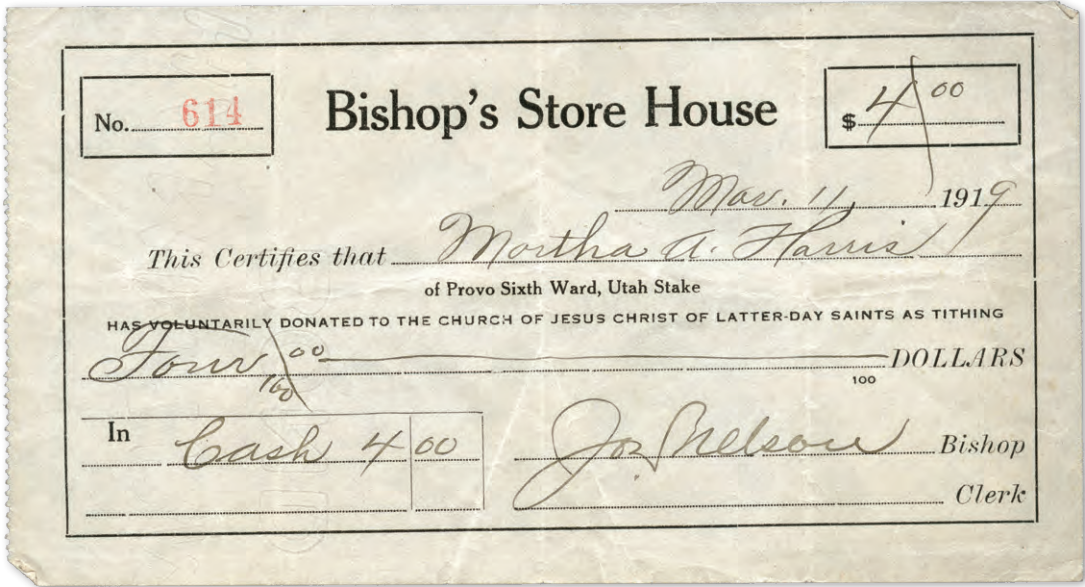 Bishop's Store House
No. 614
$ 4 00
Mar. 11, 1919
This Certifies that Martha A. Harris
of Provo Sixth Ward, Utah Stake
HAS VOLUNTARILY DONATED TO THE CHURCH OF JESUS CHRIST OF LATTER-DAY SAINTS AS TITHING
Four 00/100 DOLLARS
100
In Cash 4 00
Jos Nelson Bishop
Clerk